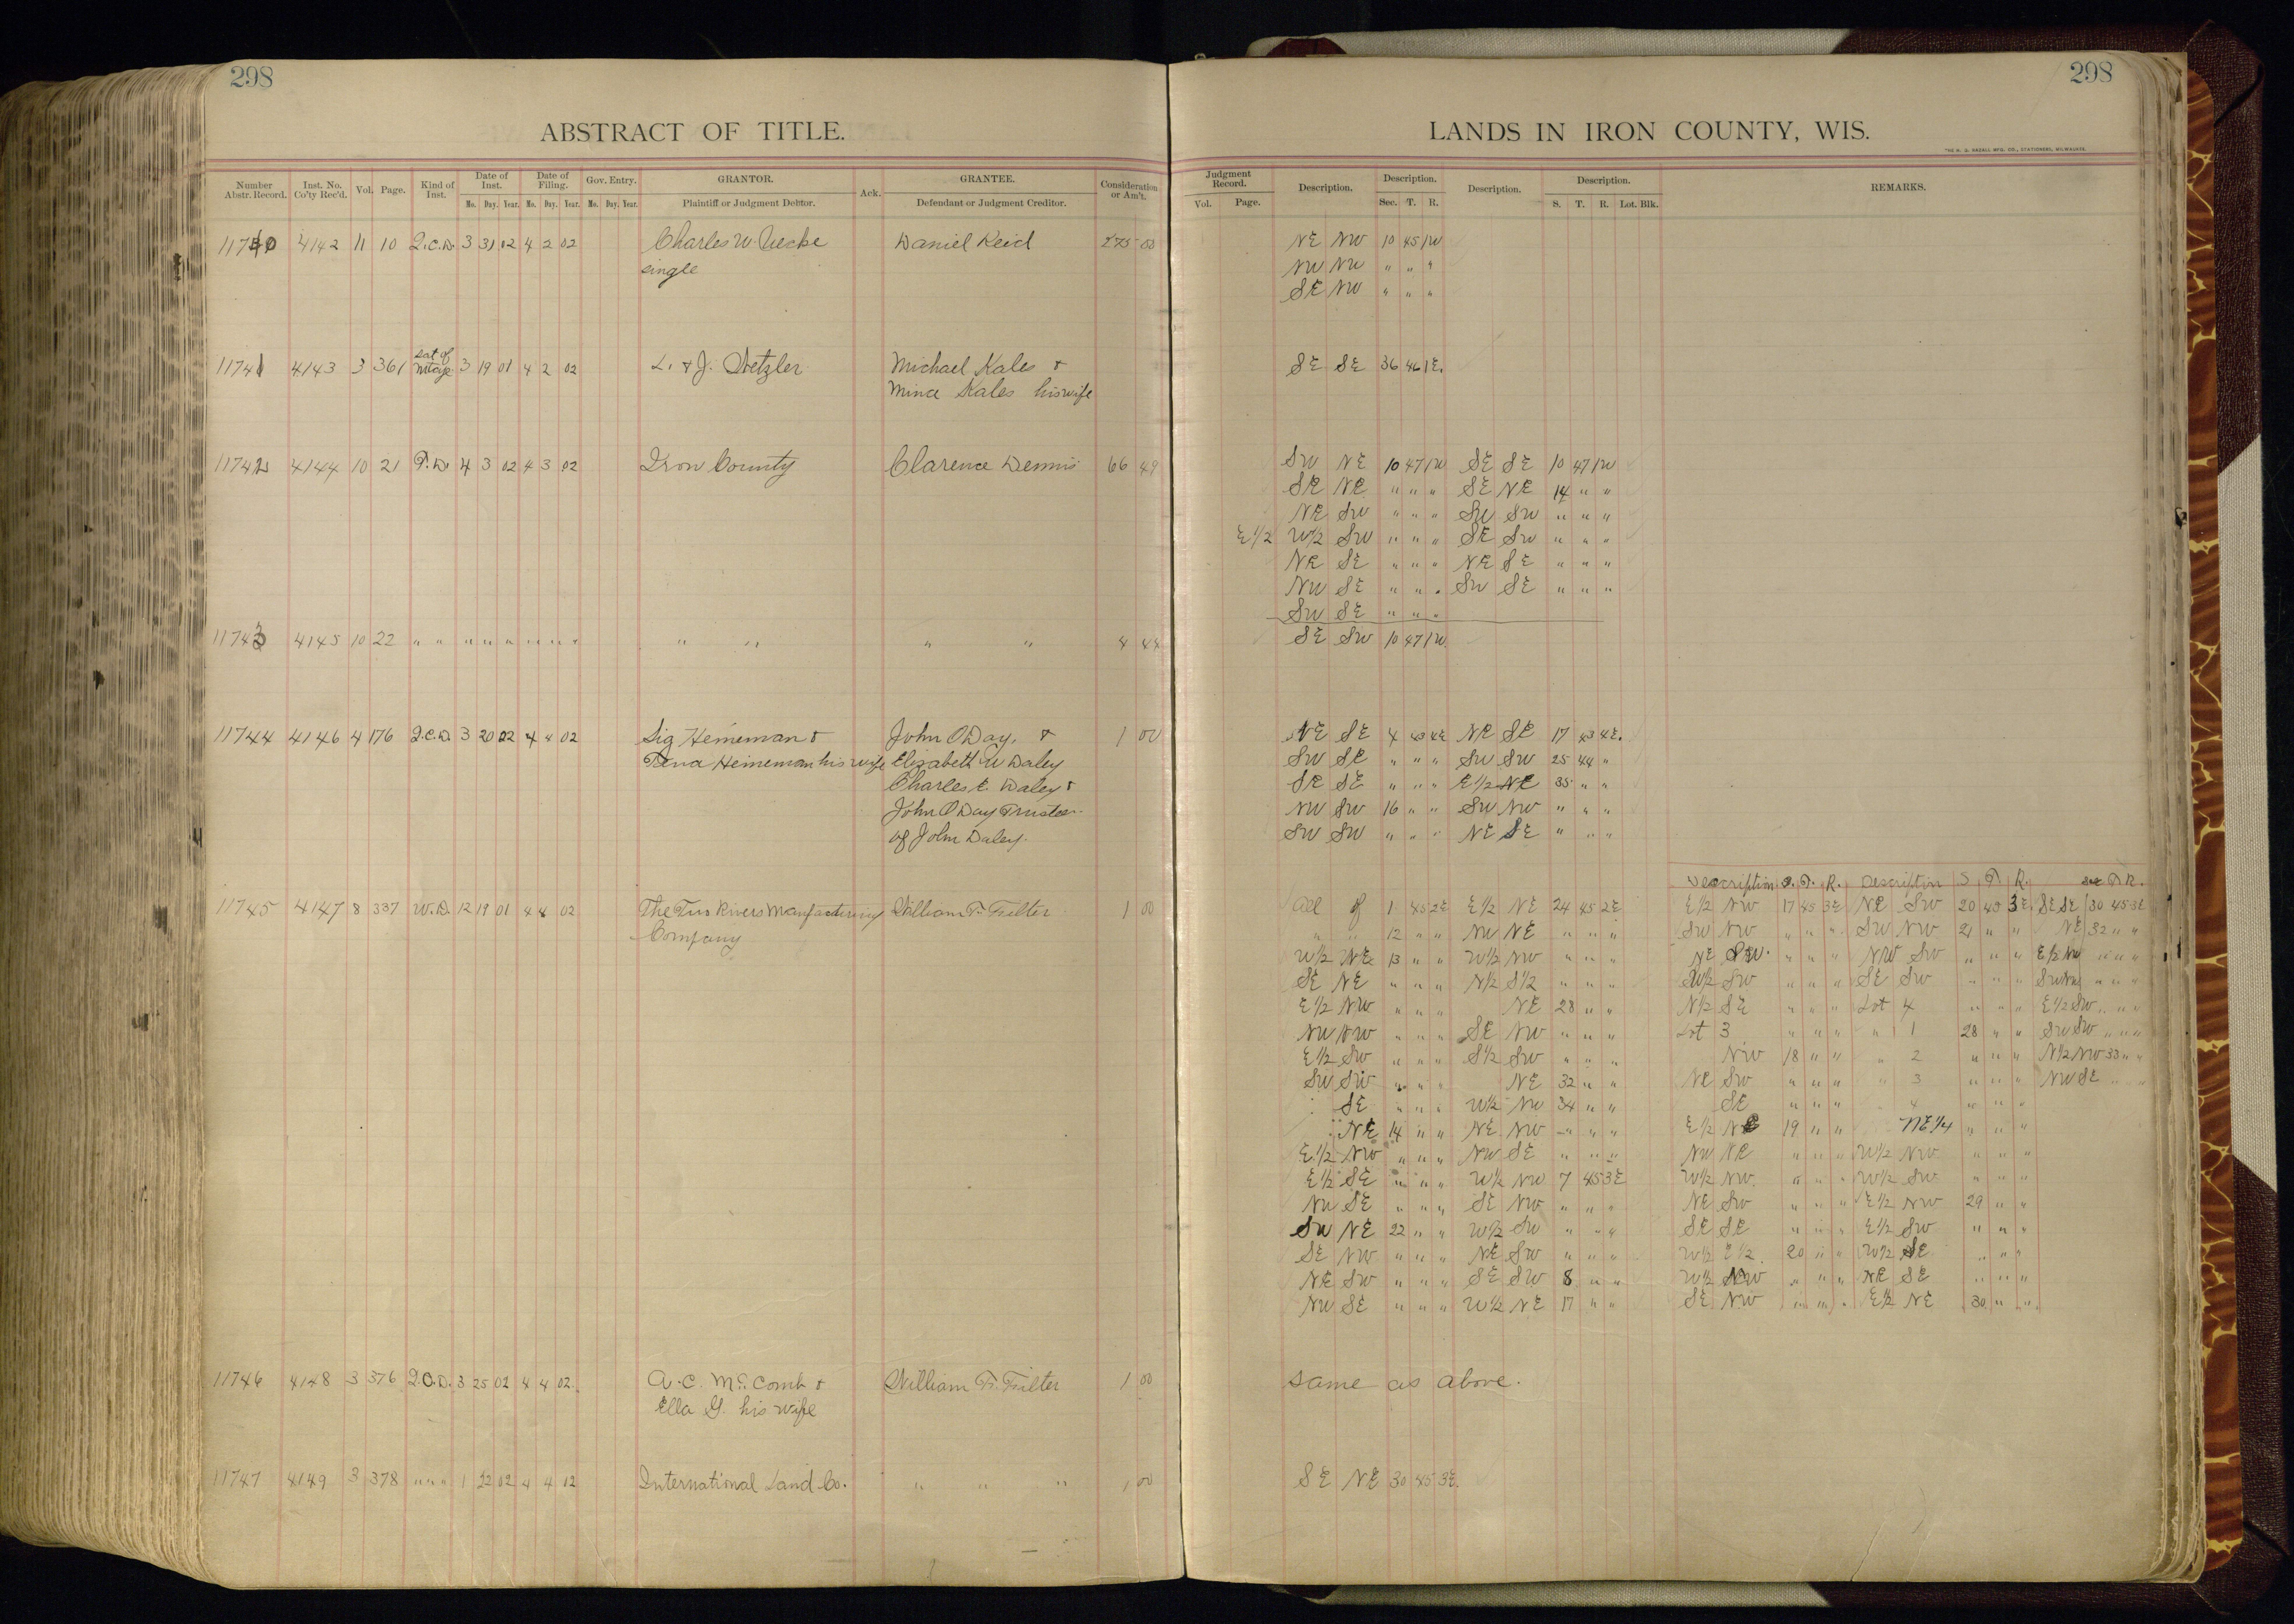 298
ABSTRACT OF TITLE.
Number Abstr. Record. Inst. No. Co'ty Rec'd. Vol. Page. Kind of Inst. Date of Inst. Mo. Day. Year. Date of Filing. Mo. Day. Year. Gov. Entry. Mo. Day. Year. GRANTOR. Plaintiff or Judgment Debtor. Ack. GRANTEE. Defendant or Judgment Creditor. Consideration or Am't.
11740 4142 11 10 Q.C.D. 3 31 02 4 2 02 Charles W. Daniel Reid 275 00
single
11741 4143 3 361 Sat of Mtage 3 19 01 4 2 02 L. & J. Michael Kales &
Mina Kales his wife
11742 4144 10 21 T.D. 4 3 02 4 3 02 Iron County Clarence Dennis 66 49
11743 4145 10 22 " " " " " " " " " " " " 4 44
11744 4146 4 176 Q.C.D. 3 20 02 4 4 02 Sig Heineman & John O Day, & 1 00
Heineman his wife Elizabeth W Daley
Charles E. Daley &
John O Day Trustee
of John Daley.
11745 4147 8 337 W.D. 12 19 01 4 4 02 The Two Rivers Manfacturing William F. 1 00
Company
11746 4148 3 376 Q.C.D. 3 25 02 4 4 02 A. C. McComb & William F. 1 00
Ella G. his wife
11747 4149 3 378 " " " 1 22 02 4 4 02 International Land Co. " " " 1 00
298
LANDS IN IRON COUNTY, WIS.
Judgment Record. Vol. Page. Description. Description. Sec. T. R. Description. Description. S. T. R. Lot. Blk. REMARKS.
NE NW 10 45 1W
NW NW " " "
SE NW " " "
SE SE 36 46 1E.
SW NE 10 47 1W SE SE 10 47 1W
SE NE " " " SE NE 14 " "
NE SW " " " SW SW " " "
E1/2 W1/2 SW " " " SE SW " " "
NE SE " " " NE SE " " "
NW SE " " " SW SE " " "
SW SE " " "
SE SW 10 47 1W
NE SE 4 43 4E NE SE 17 43 4E.
SW SE " " " SW SW 25 44 "
SE SE " " " E1/2 NE 35 " "
NW SW 16 " " SW NW " " "
SW SW " " " NE SE " " "
Description S. T. R. Description S T R. Sec T R.
All of 1 45 2E E1/2 NE 24 45 2E E1/2 NW 17 45 3E NE SW 20 45 3E SE SE 30 45 3E
" " 12 " " NW NE " " " SW NW " " " SW NW 21 " " NE 32 " "
W1/2 NE 13 " " W1/2 NW " " " NE SW " " " NW SW " " " E1/2 NW " " "
SE NE " " " N1/2 S1/2 " " " W1/2 SW " " " SE SW " " " SW NW " " "
E1/2 NW " " " NE 28 " " N1/2 SE " " " Lot 4 " " " E1/2 SW " " "
NW NW " " " SE NW " " " Lot 3 " " " " 1 28 " " SW SW " " "
E1/2 SW " " " S1/2 SW " " " NW 18 " " " 2 " " " N1/2 NW 33 " "
SW SW " " " NE 32 " " NE SW " " " " 3 " " " NW SE " "
SE " " " W1/2 NW 34 " " SE " " " " 4 " " "
NE 14 " " NE NW " " " E1/2 NE 19 " " NE1/4 " " "
E1/2 NW " " " NW SE " " " NW NE " " " W1/2 NW " " "
E1/2 SE " " " W1/2 NW 7 45 3E W1/2 NW " " " W1/2 SW " " "
NW SE " " " SE NW " " " NE SW " " " E1/2 NW 29 " "
SW NE 22 " " W1/2 SW " " " SE SE " " " E1/2 SW " " "
SE NW " " " NE SW " " " W1/2 E1/2 20 " " W1/2 SE " " "
NE SW " " " SE SW 8 " " W1/2 NW " " " NE SE " " "
NW SE " " " W1/2 NE 17 " " SE NW " " " E1/2 NE 30 " "
same as above.
SE NE 30 45 3E.